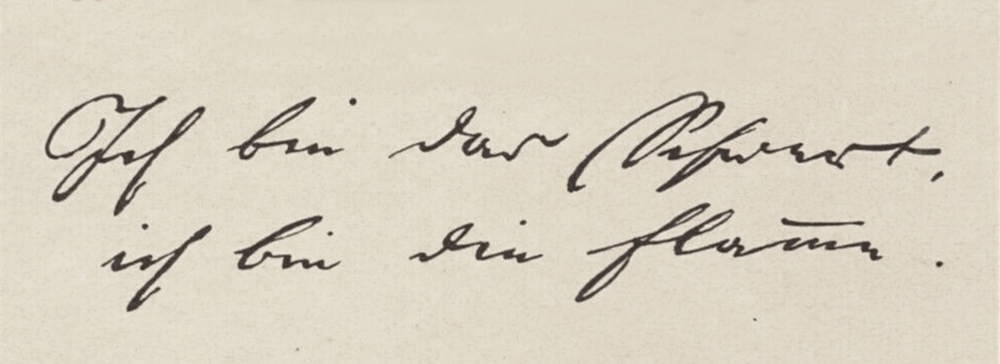 Ich bin das Schwert,
ich bin die Flam̅e.